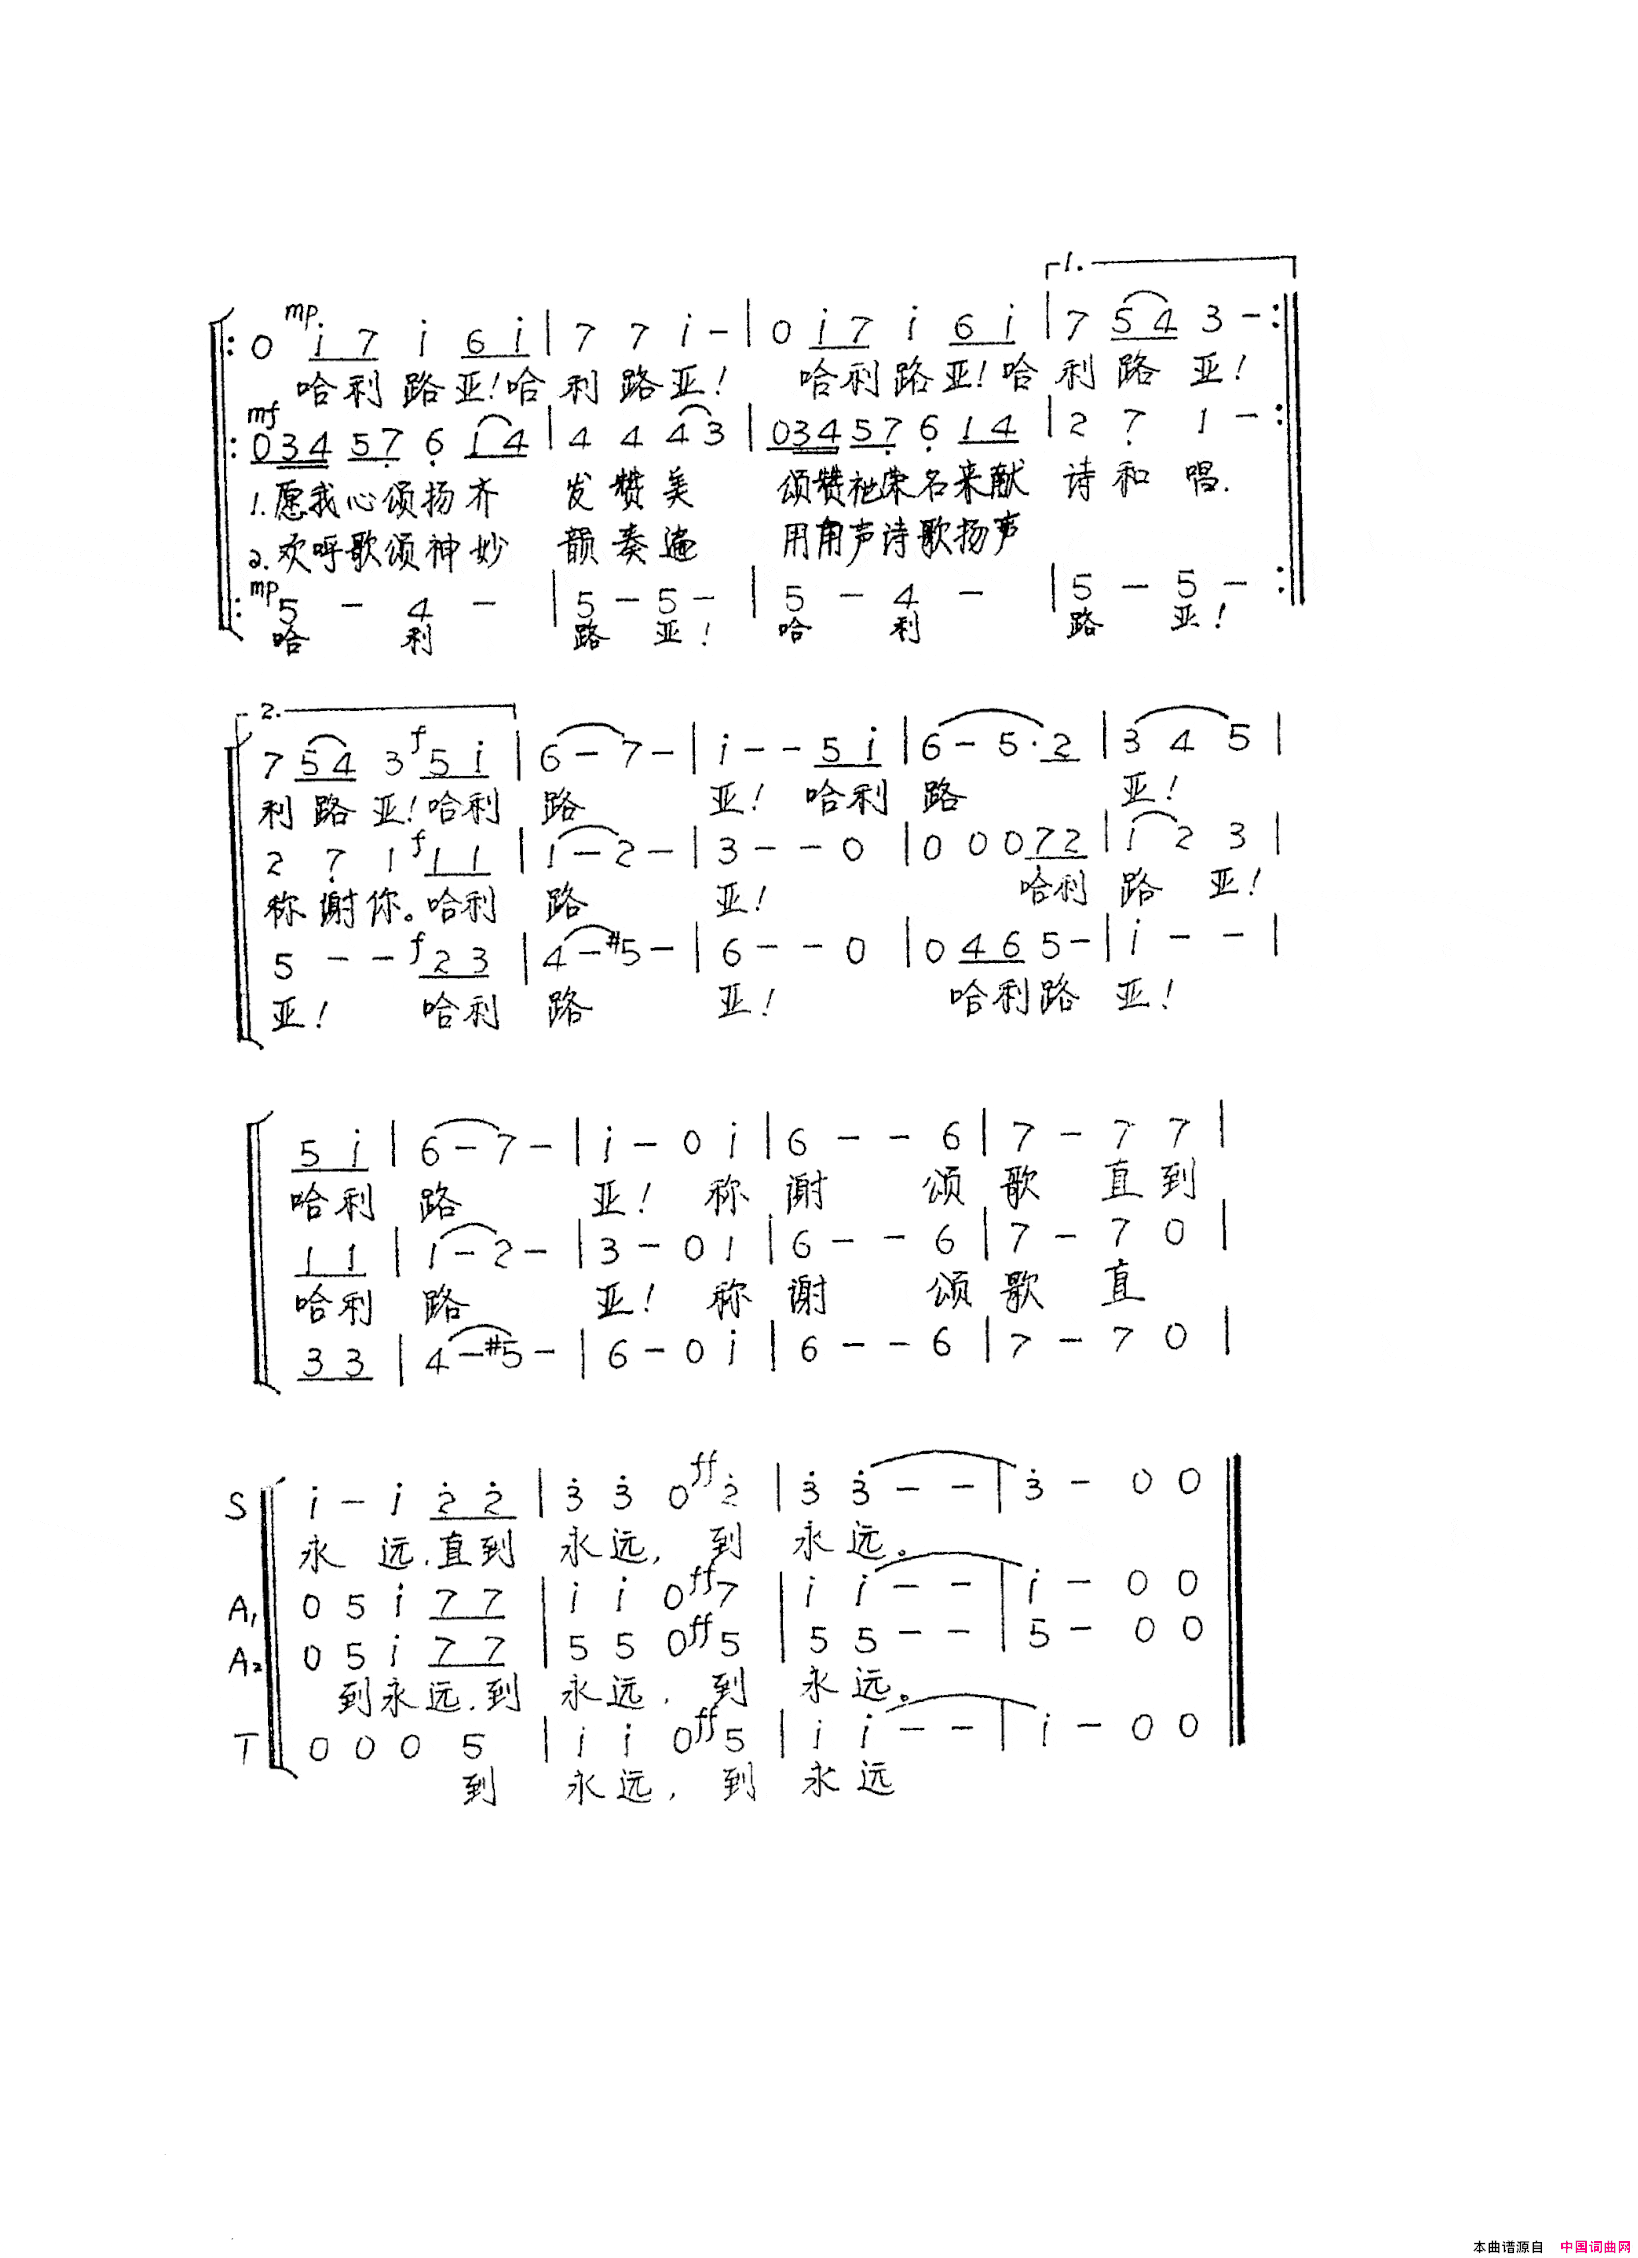 1.
mp 0 i 7 i 6 i | 7 7 i - | 0 i 7 i 6 i | 7 5 4 3 - :
哈利路亚!哈利路亚! 哈利路亚!哈利路亚!
mf 0 3 4 5 7 6 1 4 | 4 4 4 3 | 0 3 4 5 7 6 1 4 | 2 7 1 - :
1.愿我心颂扬齐 发赞美 颂赞祂荣名来献 诗和唱.
2.欢呼歌颂神妙 韻奏遍 用角声诗歌扬声
mp 5 - 4 - | 5 - 5 - | 5 - 4 - | 5 - 5 - :
哈 利 路 亚! 哈 利 路 亚!
2.
7 5 4 3 f 5 i | 6 - 7 - | i - - 5 i | 6 - 5 · 2 | 3 4 5 |
利路亚!哈利 路 亚! 哈利 路 亚!
2 7 1 f 1 1 | 1 - 2 - | 3 - - 0 | 0 0 0 7 2 | 1 2 3 |
称谢你。哈利 路 亚! 哈利 路 亚!
5 - - f 2 3 | 4 - #5 - | 6 - - 0 | 0 4 6 5 - | i - - |
亚! 哈利 路 亚! 哈利路 亚!
5 i | 6 - 7 - | i - 0 i | 6 - - 6 | 7 - 7 7 |
哈利 路 亚! 称 谢 颂 歌 直到
1 1 | 1 - 2 - | 3 - 0 1 | 6 - - 6 | 7 - 7 0 |
哈利 路 亚! 称 谢 颂 歌 直
3 3 | 4 - #5 - | 6 - 0 i | 6 - - 6 | 7 - 7 0 |
S i - i 2 2 | 3 3 0 ff 2 | 3 3 - - | 3 - 0 0
永 远.直到 永远, 到 永远。
A1 0 5 i 7 7 | i i 0 ff 7 | i i - - | i - 0 0
A2 0 5 i 7 7 | 5 5 0 ff 5 | 5 5 - - | 5 - 0 0
到永远.到 永远, 到 永远。
T 0 0 0 5 | i i 0 ff 5 | i i - - | i - 0 0
到 永远, 到 永远
本曲谱源自 中国词曲网